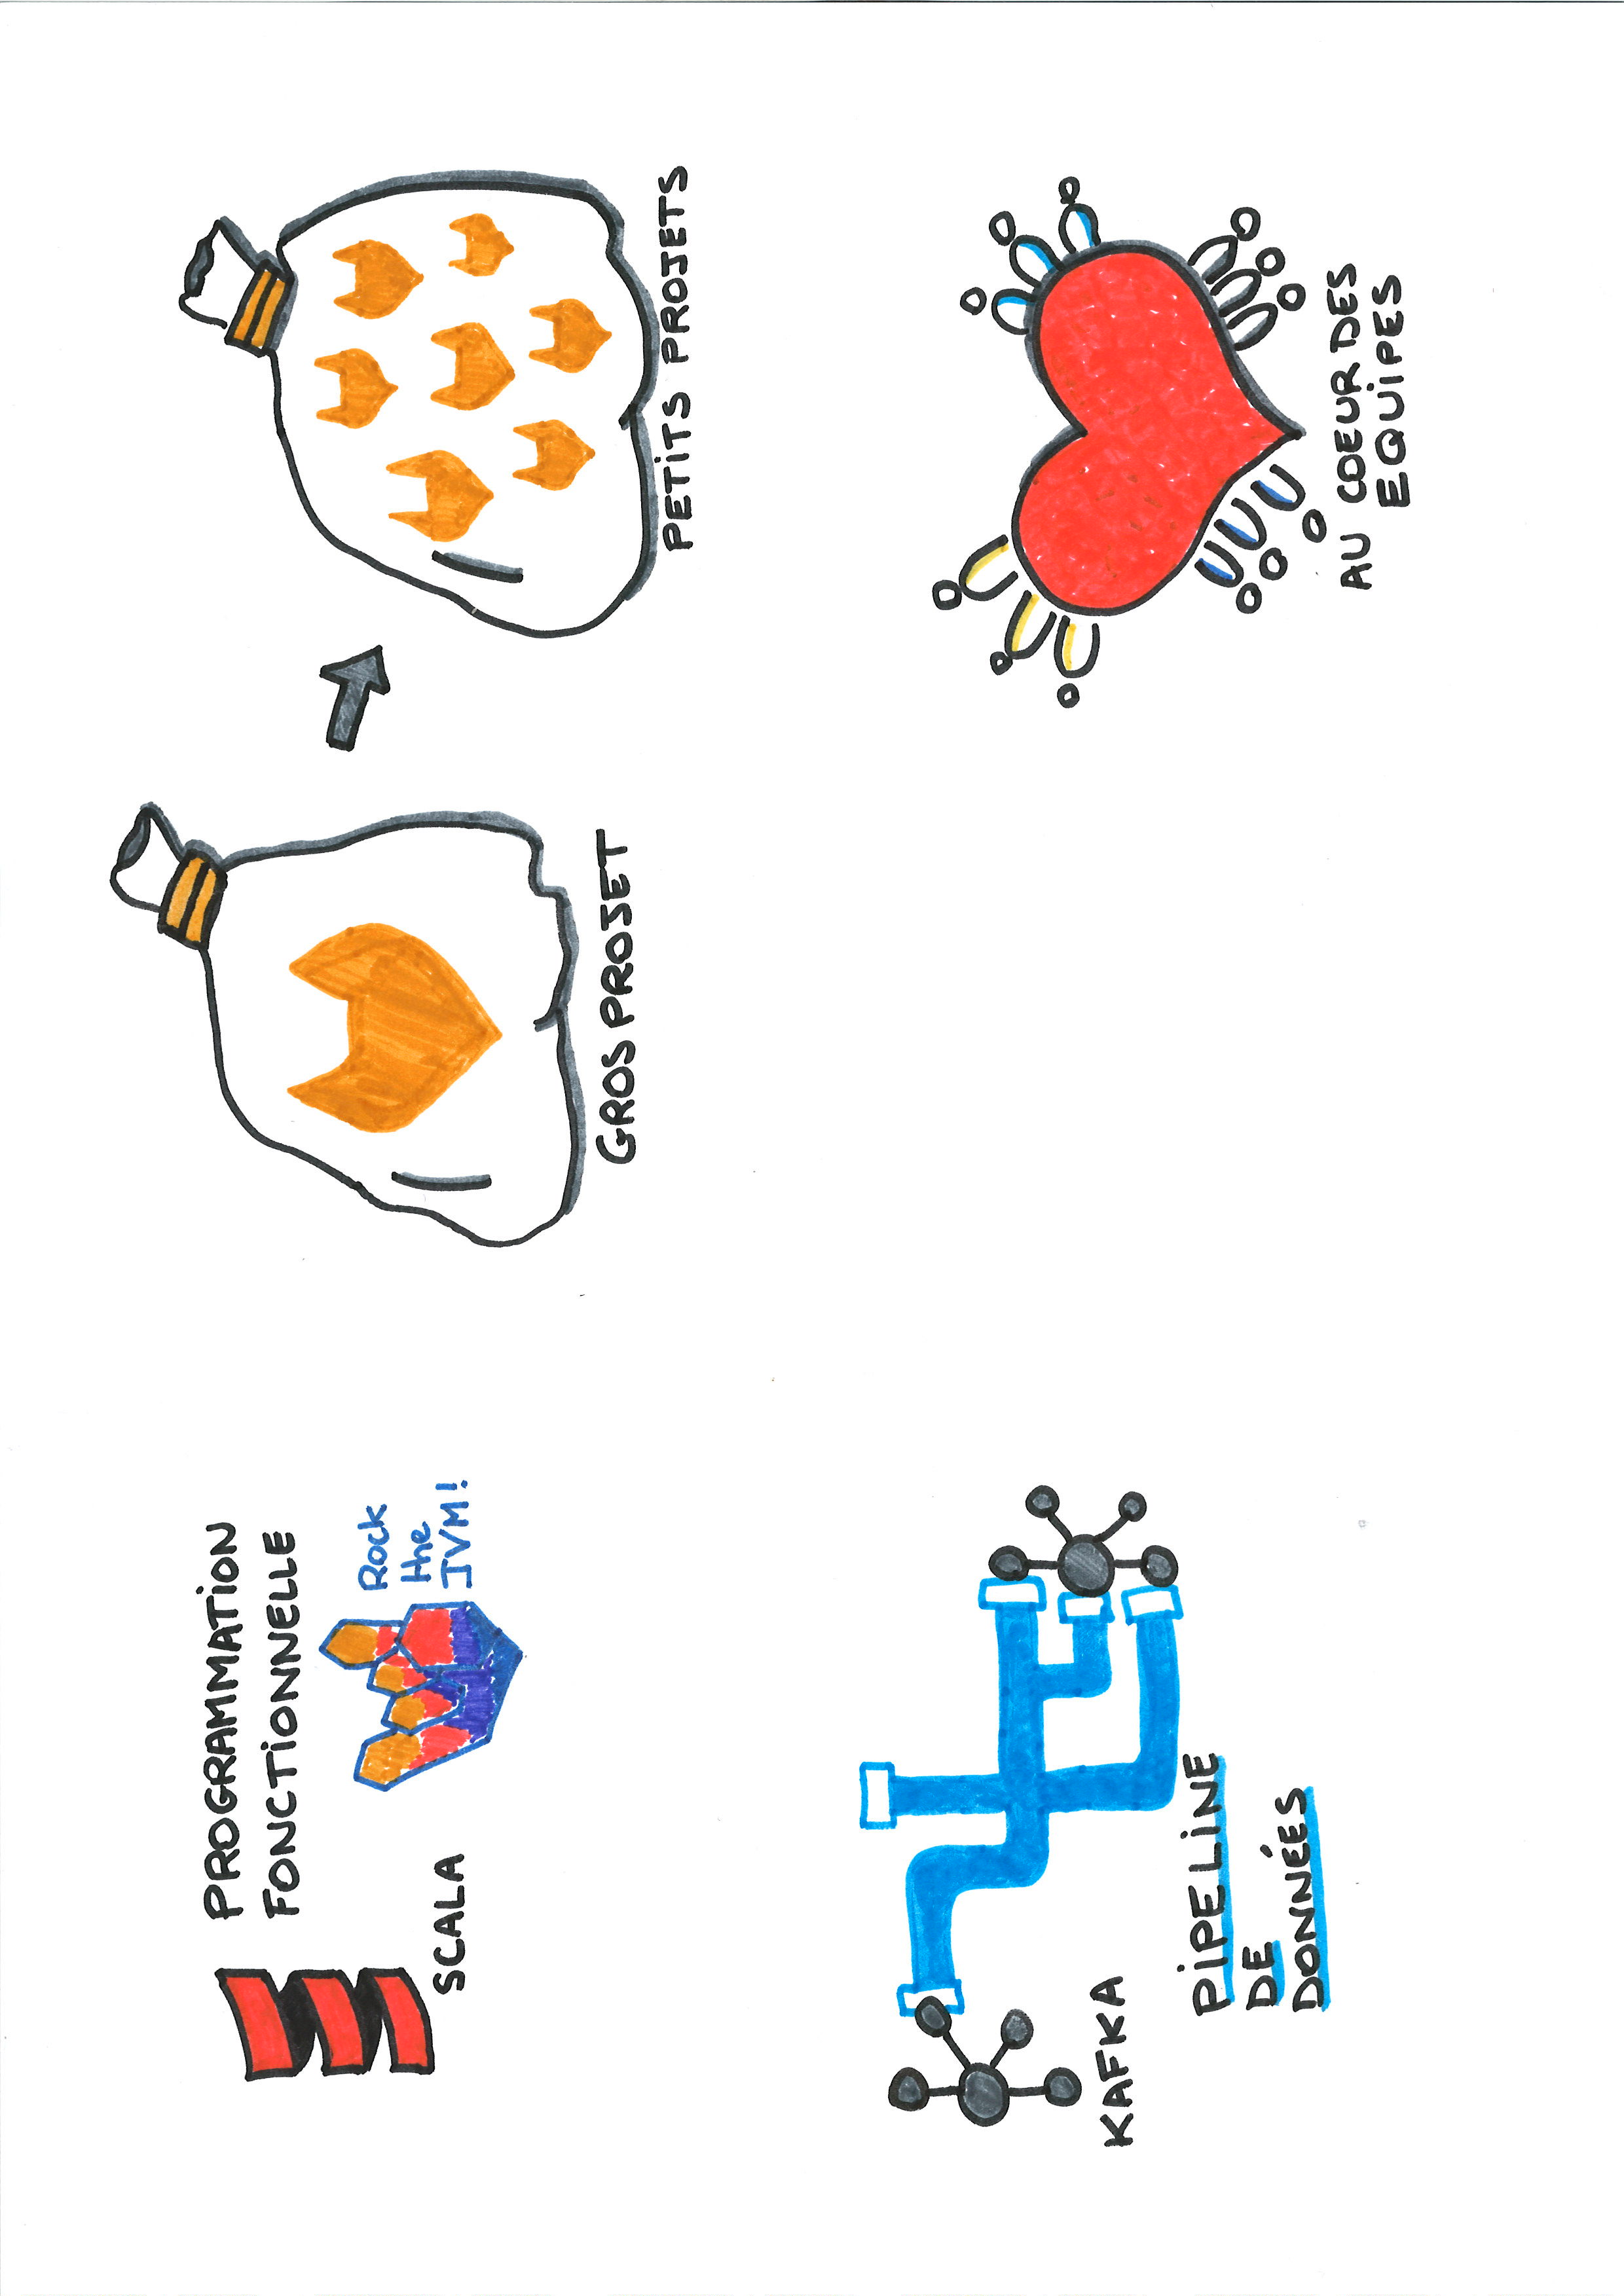 PROGRAMMATION
FONCTIONNELLE
SCALA
Rock
the
JVM!
GROS PROJET
PETITS PROJETS
KAFKA
PIPELINE
DE
DONNÉES
AU COEUR DES
EQUIPES